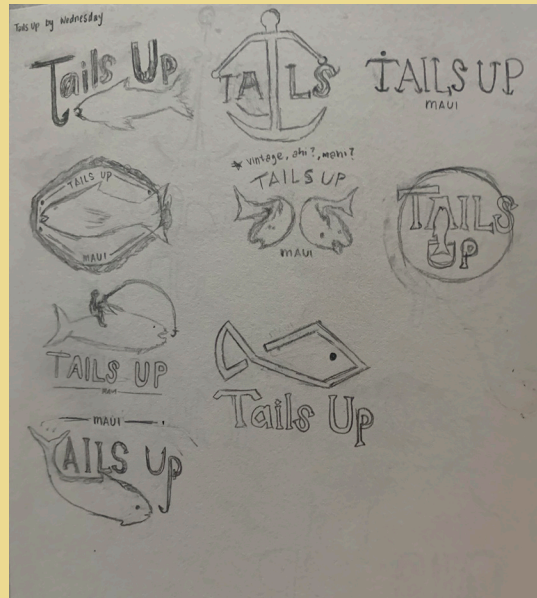 Tails Up by Wednesday
Tails Up
TAILS
TAILS UP
MAUI
TAILS UP
MAUI
* vintage, ahi?, mahi?
TAILS UP
MAUI
TAILS
UP
TAILS UP
MAUI
Tails Up
MAUI
TAILS Up